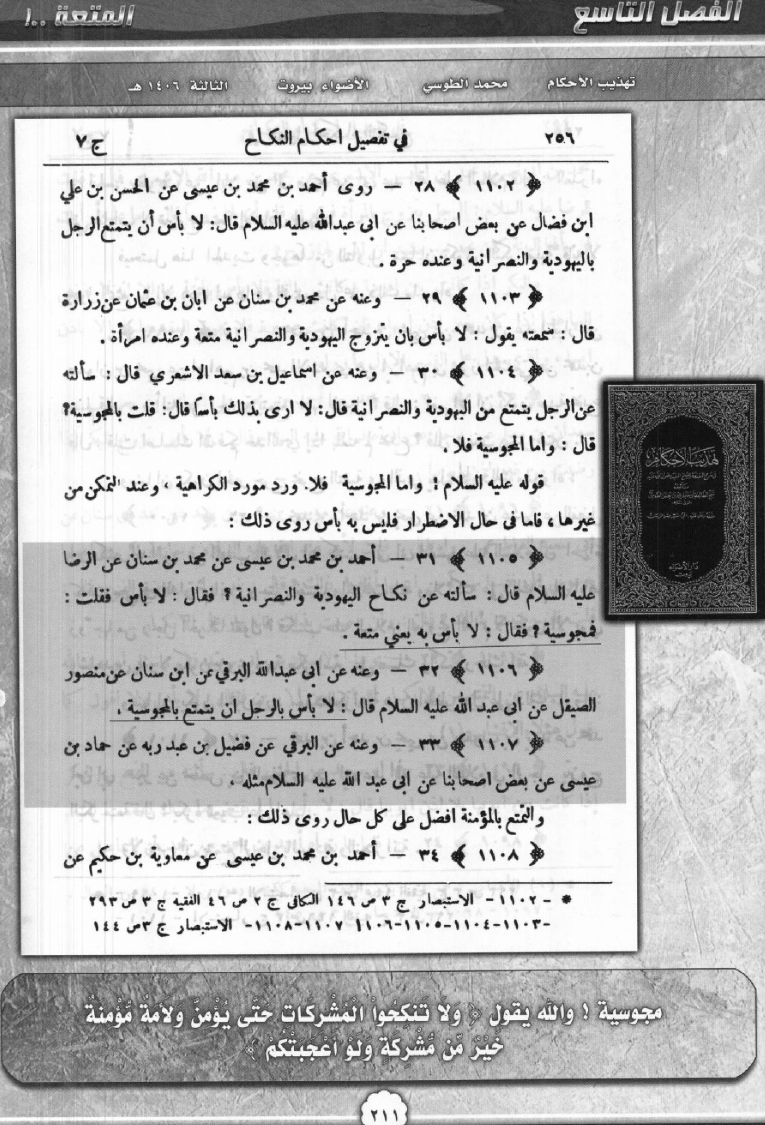 الفصل التاسع
المتعة ..!
تهذيب الأحكام محمد الطوسي الأضواء بيروت الثالثة ١٤٠٦ هـ
٢٥٦ في تفصيل احكام النكاح ج ٧
﴿ ١١٠٢ ﴾ ٢٨ — روى أحمد بن محمد بن عيسى عن الحسن بن علي
ابن فضال عن بعض اصحابنا عن ابى عبدالله عليه السلام قال: لا بأس أن يتمتع الرجل
باليهودية والنصرانية وعنده حرة .
﴿ ١١٠٣ ﴾ ٢٩ — وعنه عن محمد بن سنان عن ابان بن عثمان عن زرارة
قال : سمعته يقول : لا بأس بان يتزوج اليهودية والنصرانية متعة وعنده امرأة .
﴿ ١١٠٤ ﴾ ٣٠ — وعنه عن اسماعيل بن سعد الاشعري قال : سألته
عن الرجل يتمتع من اليهودية والنصرانية قال: لا ارى بذلك بأسا قال: قلت بالمجوسية؟
قال : واما المجوسية فلا .
قوله عليه السلام : واما المجوسية فلا. ورد مورد الكراهية ، وعند التمكن من
غيرها ، فاما فى حال الاضطرار فليس به بأس روى ذلك :
﴿ ١١٠٥ ﴾ ٣١ — أحمد بن محمد بن عيسى عن محمد بن سنان عن الرضا
عليه السلام قال : سألته عن نكاح اليهودية والنصرانية ؟ فقال : لا بأس فقلت :
فمجوسية ؟ فقال : لا بأس به يعني متعة .
﴿ ١١٠٦ ﴾ ٣٢ — وعنه عن ابى عبدالله البرقي عن ابن سنان عن منصور
الصيقل عن ابى عبد الله عليه السلام قال : لا بأس بالرجل ان يتمتع بالمجوسية .
﴿ ١١٠٧ ﴾ ٣٣ — وعنه عن البرقي عن فضيل بن عبد ربه عن حماد بن
عيسى عن بعض اصحابنا عن ابى عبد الله عليه السلام مثله .
والتمتع بالمؤمنة افضل على كل حال روى ذلك :
﴿ ١١٠٨ ﴾ ٣٤ — أحمد بن محمد بن عيسى عن معاوية بن حكيم عن
* - ١١٠٢ - الاستبصار ج ٣ ص ١٤٦ الكافى ج ٢ ص ٤٦ الفقيه ج ٣ ص ٢٩٣
-١١٠٣-١١٠٤-١١٠٥-١١٠٦ ١١٠٧-١١٠٨- الاستبصار ج ٣ ص ١٤٤
تهذيب الأحكام
مجوسية ! والله يقول ﴿ ولا تنكحوا الْمُشْركات حَتَّى يُؤْمنّ ولأَمَةٌ مُؤْمنةٌ
خَيْرٌ مّن مُّشْركة ولوْ أعْجبتْكُمْ ﴾
٢١١